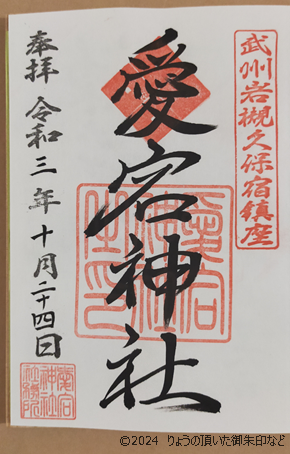 武州岩槻久保宿鎮座
愛宕神社
奉拝 令和三年十月二十四日
愛宕
神社
社務所
©2024 りょうの頂いた御朱印など